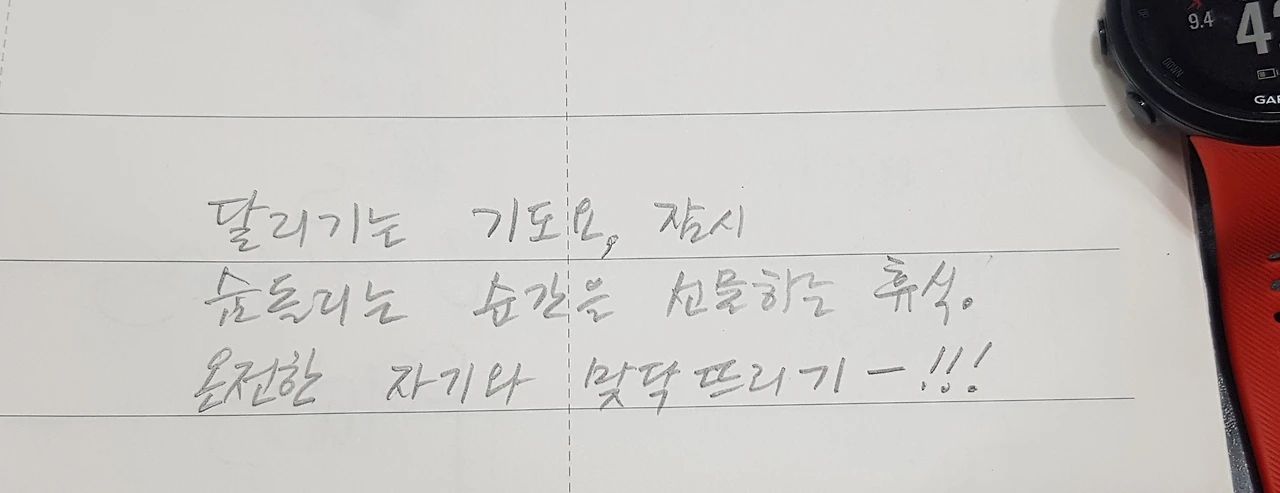 9.4
DOWN
GAR
달리기는 기도요, 잠시
숨돌리는 순간을 선물하는 휴식.
온전한 자기와 맞닥뜨리기 – !!!